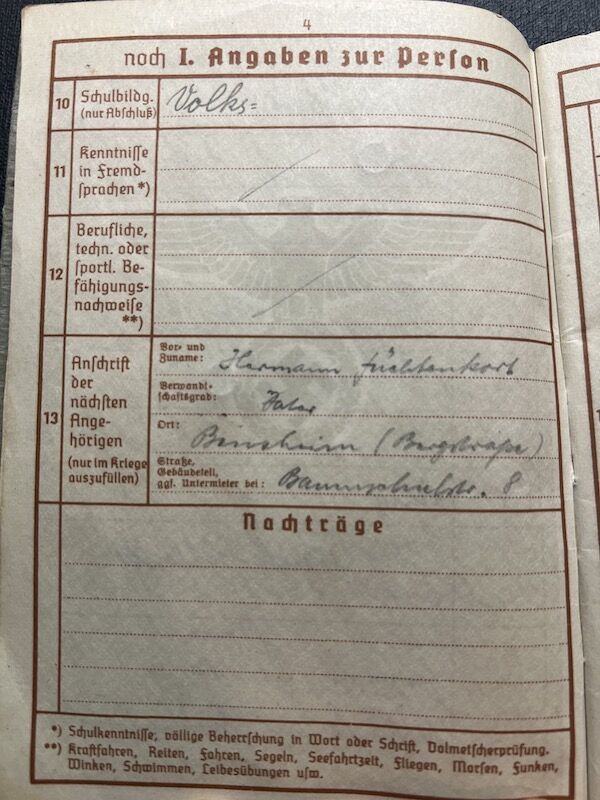 4
noch I. Angaben zur Person
10 Schulbildg. (nur Abschluß) Volks=
11 Kenntnisse in Fremd-
sprachen *)
12 Berufliche,
techn. oder
sportl. Be-
fähigungs-
nachweise
**)
13 Anschrift
der
nächsten
Ange-
hörigen
(nur im Kriege
auszufüllen)
Vor- und
Zuname: Hermann Füchtenkort
Verwandt-
schaftsgrad: Vater
Ort: Bensheim (Bergstraße)
Straße,
Gebäudeteil,
ggf. Untermieter bei: Baumschulstr. 8
Nachträge
*) Schulkenntnisse, völlige Beherrschung in Wort oder Schrift, Dolmetscherprüfung.
**) Kraftfahren, Reiten, Fahren, Segeln, Seefahrtzeit, Fliegen, Morsen, Funken,
Winken, Schwimmen, Leibesübungen usw.